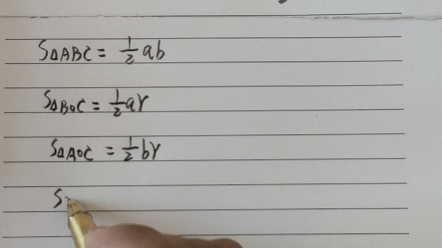 S△ABC = 1/2 ab
S△BOC = 1/2 ar
S△AOC = 1/2 br
S